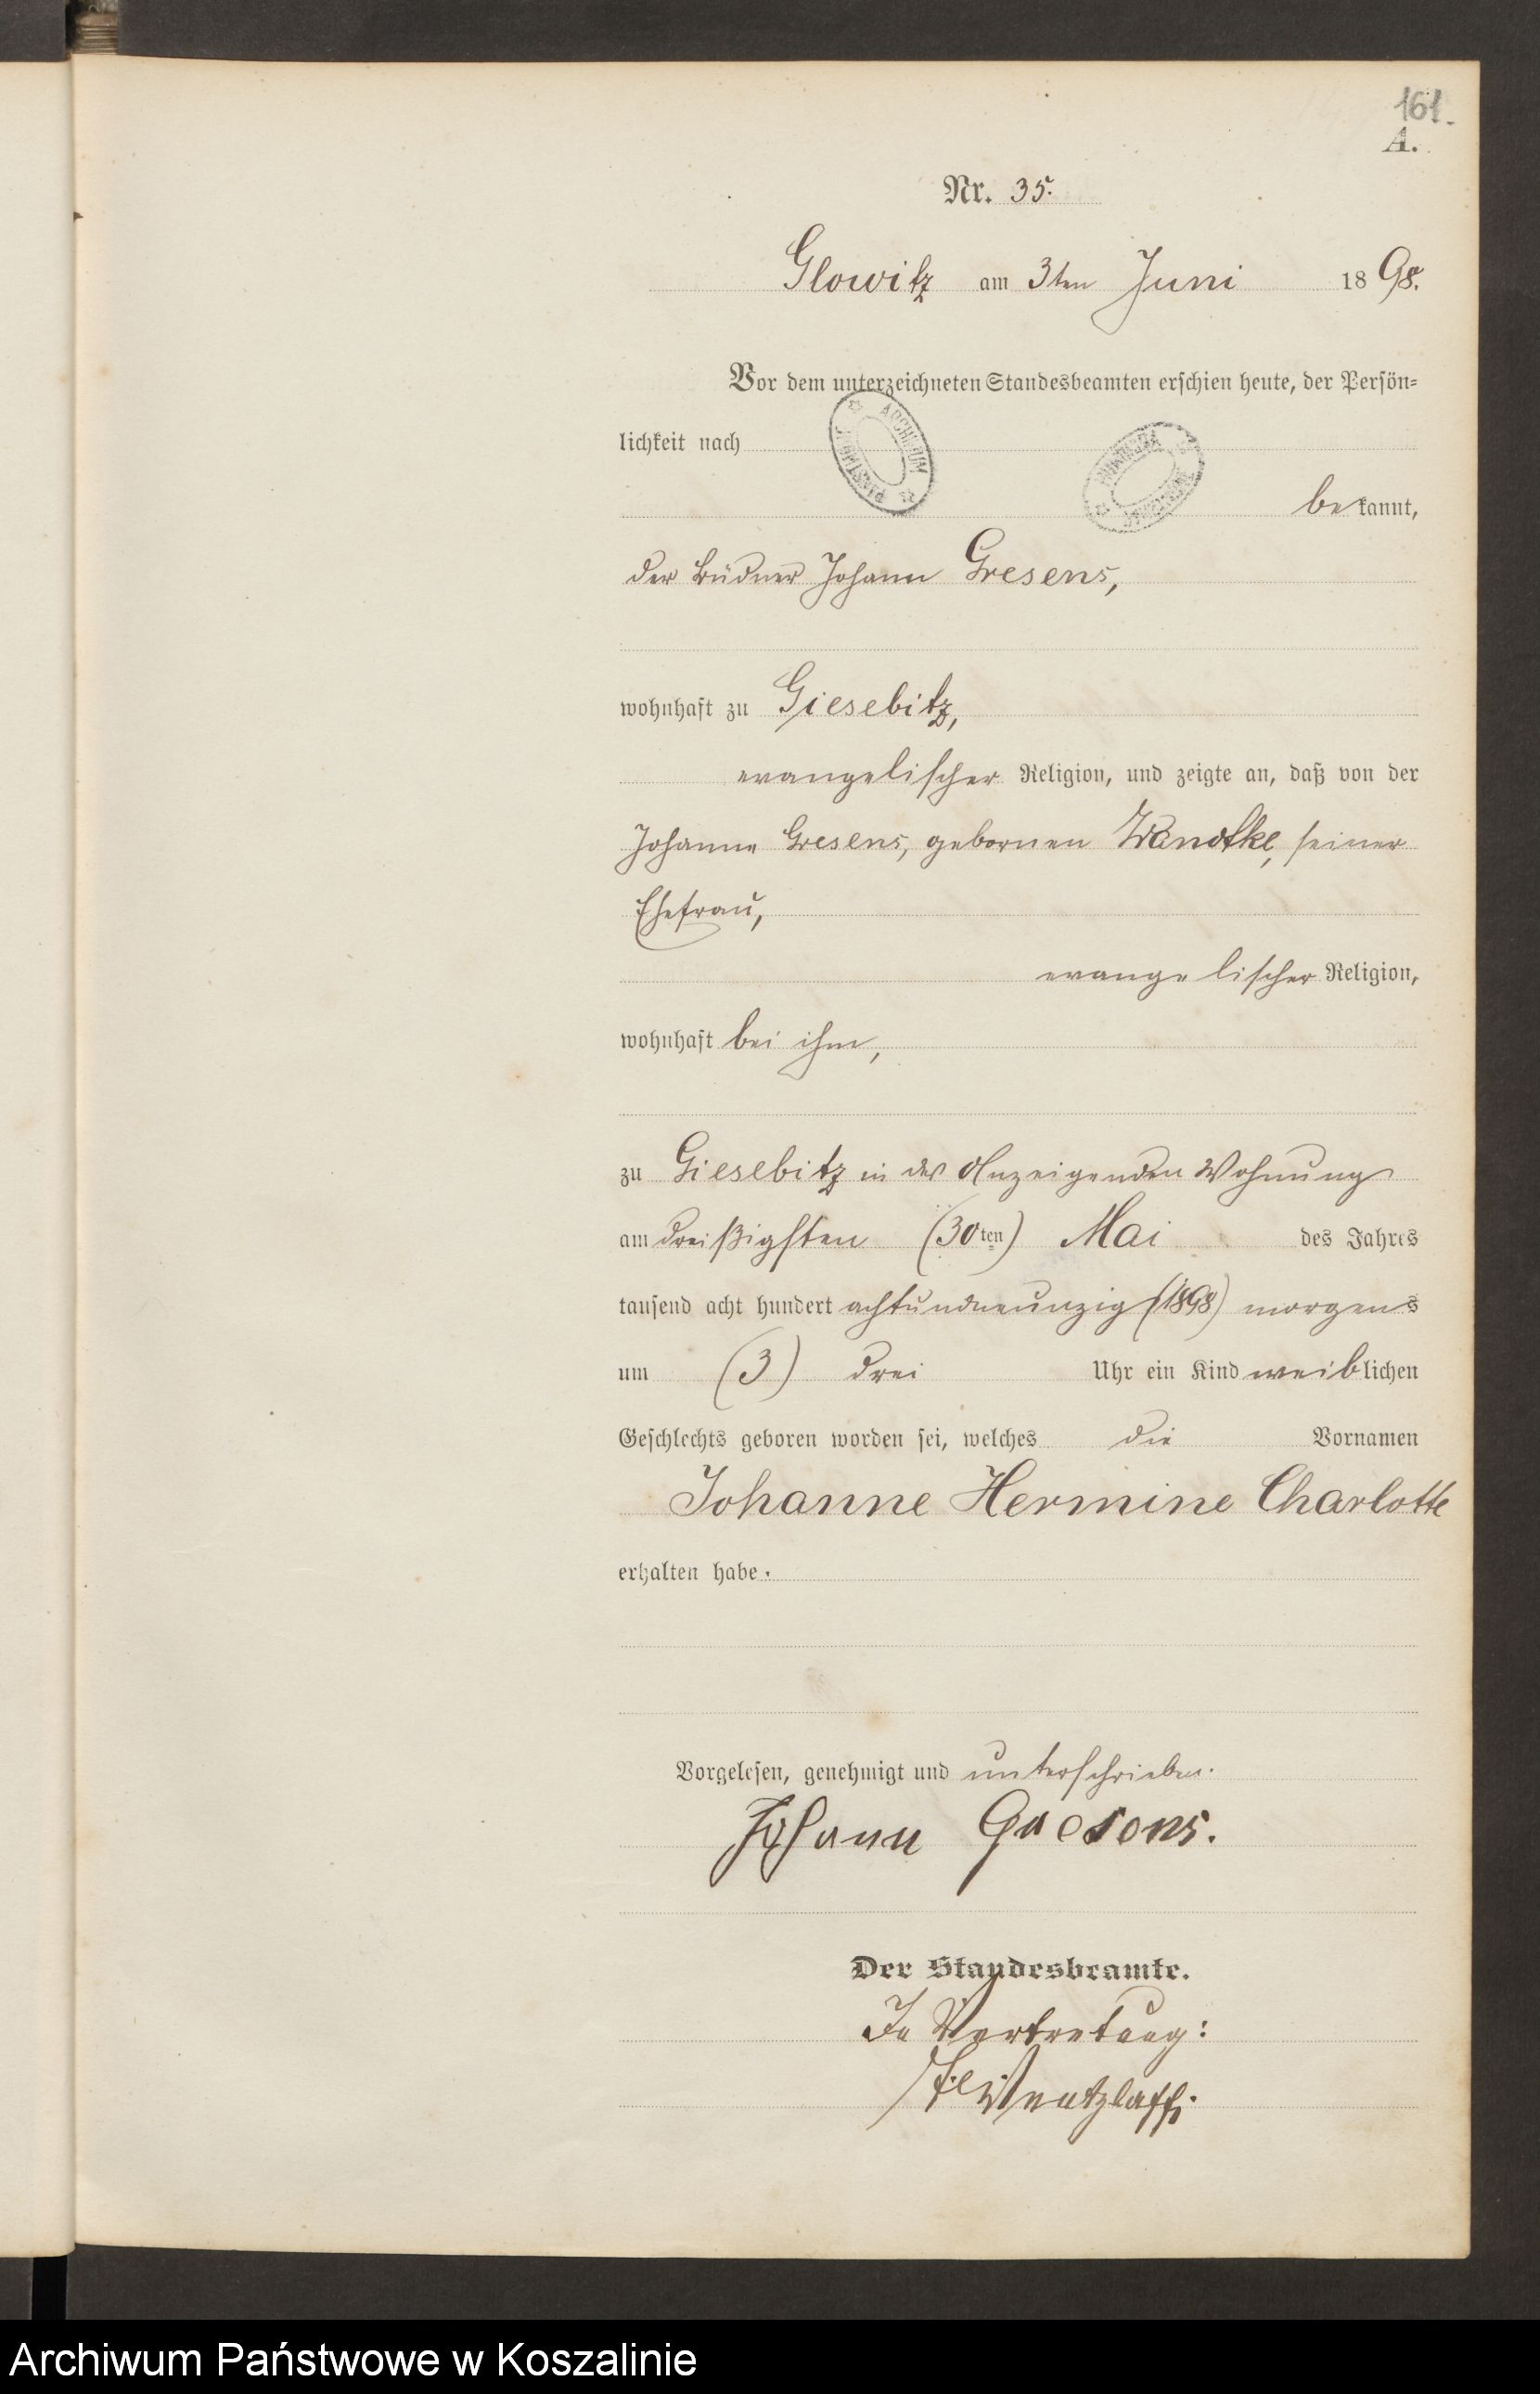 161.
A.
Nr. 35.
Glowitz am 3ten Juni 1898.
Vor dem unterzeichneten Standesbeamten erschien heute, der Persön=
lichkeit nach
ARCHIWUM
bekannt,
der Büdner Johann Gresens,
wohnhaft zu Giesebitz,
evangelischer Religion, und zeigte an, daß von der
Johanne Gresens, gebornen Wandtke, seiner
Ehefrau,
evangelischer Religion,
wohnhaft bei ihm,
zu Giesebitz in des Anzeigenden Wohnung
am dreißigsten (30ten) Mai des Jahres
tausend acht hundert achtundneunzig (1898) morgens
um (3) drei Uhr ein Kind weiblichen
Geschlechts geboren worden sei, welches die Vornamen
Johanne Hermine Charlotte
erhalten habe.
Vorgelesen, genehmigt und unterschrieben.
Johann Gresens.
Der Standesbeamte.
In Vertretung:
Wentzlaff.
Archiwum Państwowe w Koszalinie